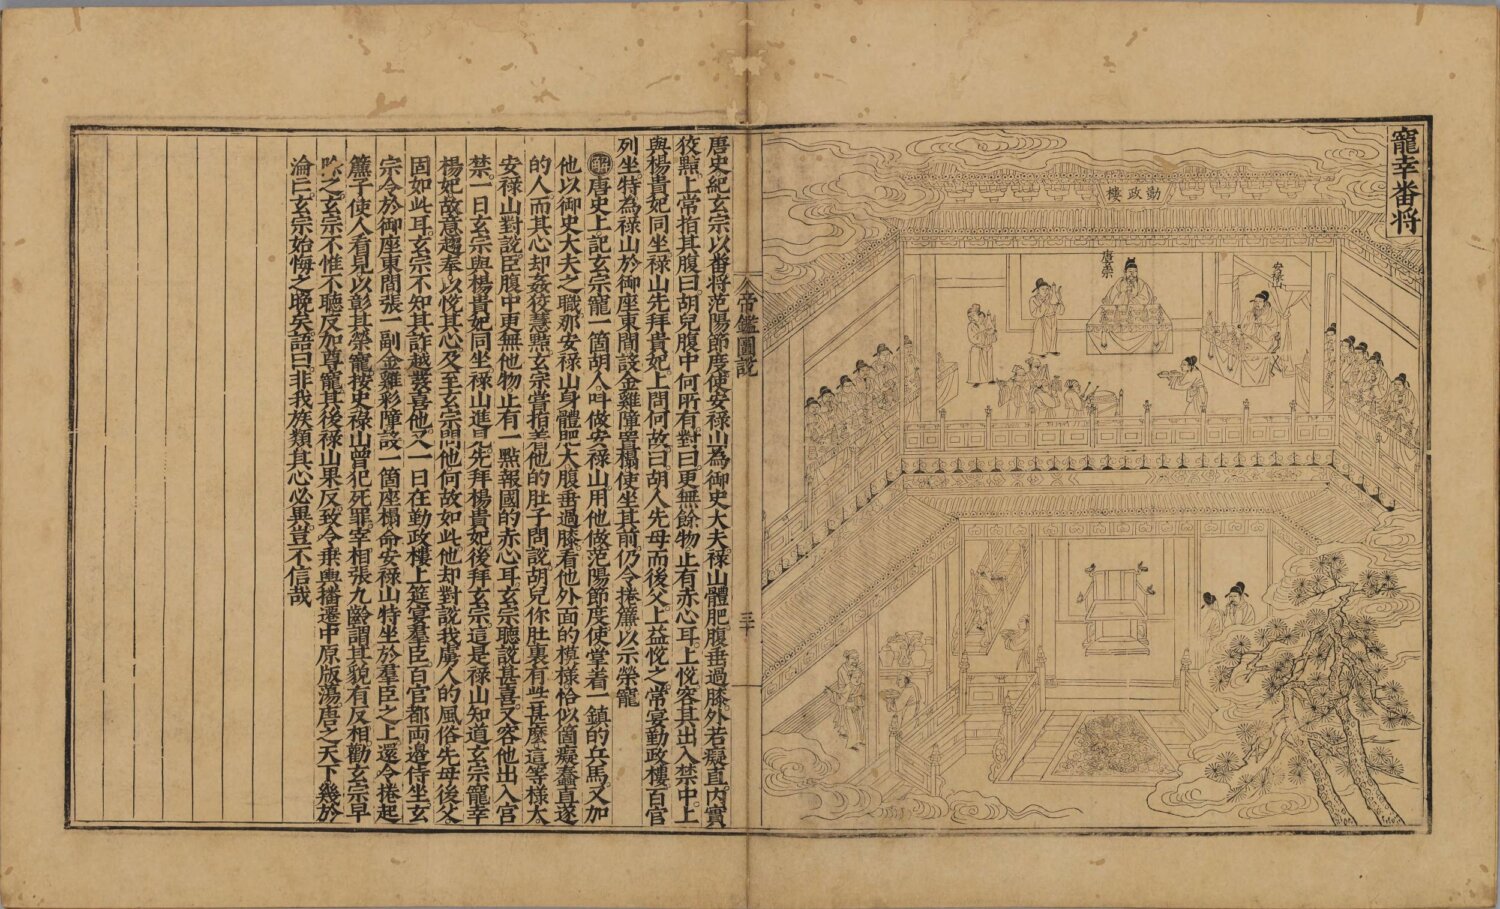 寵幸番将
勤政樓
唐玄宗
安禄山
帝鑑圖説
三十
唐史紀玄宗以番将范陽節度使安禄山為御史大夫禄山體肥腹垂過膝外若癡直内實
狡黠上常指其腹曰胡兒腹中何所有對曰更無餘物止有赤心耳上悦容其出入禁中上
與楊貴妃同坐禄山先拜貴妃上問何故曰胡人先母而後父上益悦之常宴勤政樓百官
列坐特為禄山於御座東間設金雞障置榻使坐其前仍令捲簾以示榮寵
解唐史上記玄宗寵一箇胡人叫做安禄山用他做范陽節度使掌着一鎮的兵馬又加
他以御史大夫之職那安禄山身體肥大腹垂過膝看他外面的模樣恰似箇癡蠢直遂
的人而其心却姦狡慧黠玄宗嘗指着他的肚子問説胡兒你肚裏有些甚麽這等樣大
安禄山對説臣腹中更無他物止有一點報國的赤心耳玄宗聽説甚喜又容他出入宫
禁一日玄宗與楊貴妃同坐禄山進見先拜楊貴妃後拜玄宗這是禄山知道玄宗寵幸
楊妃故意趨奉以悦其心及至玄宗問他何故如此他却對説我虜人的風俗先母後父
固如此耳玄宗不知其詐越發喜他又一日在勤政樓上筵宴羣臣百官都両邉侍坐玄
宗令於御座東間張一副金雞彩障設一箇座榻命安禄山特坐於羣臣之上還令捲起
簾子使人看見以彰其榮寵按史禄山曾犯死罪宰相張九齡謂其貌有反相勸玄宗早
除之玄宗不惟不聽反加尊寵其後禄山果反致令乗輿播遷中原版蕩唐之天下幾於
淪亡玄宗始悔之晩矣語曰非我族類其心必異豈不信哉